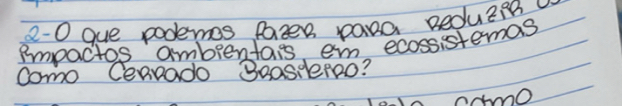 2-O que podemos fazer para reduzir os
impactos ambientais em ecossistemas
como Cerrado Brasileiro?
como